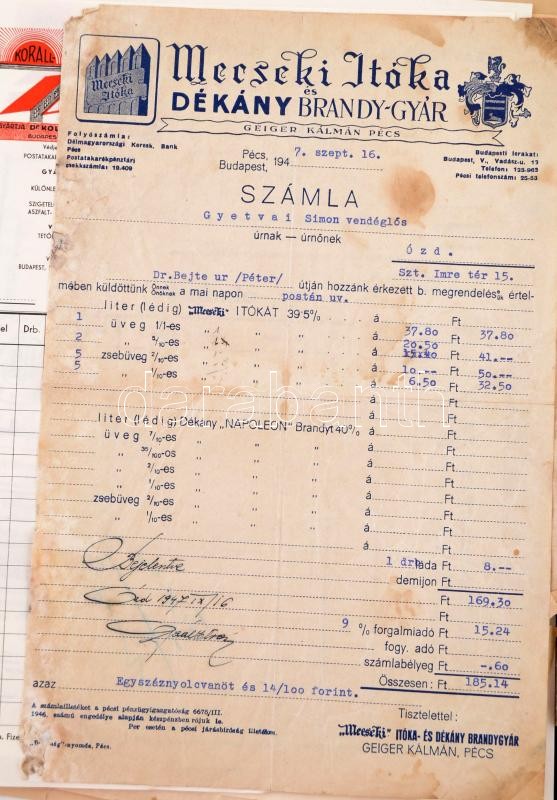 KORALL
Mecseki Itóka
Mecseki Itóka
és
DÉKÁNY BRANDY-GYÁR
GEIGER KÁLMÁN PÉCS
Folyószámla:
Délmagyarországi Keresk. Bank
Pécs
Postatakarékpénztári
csekkszámla: 19.409
Pécs,
Budapest, 194 7. szept. 16.
Budapesti lerakat:
Budapest, V., Vadász-u.
Telefon:
Pécsi telefonszám: 25-53
SZÁMLA
Gyetvai Simon vendéglős
úrnak — úrnőnek
Ózd.
Szt. Imre tér 15.
Dr. Bejte ur /Péter/ útján hozzánk érkezett b. megrendelés értel-
mében küldöttünk Önnek Önöknek a mai napon postán uv.
1 liter (lédig) "Mecseki" ITÓKÁT 39·5% á 37.80 Ft 37.80
2 üveg 1/1-es " á 20.50 Ft 41.--
5 zsebüveg 2/10-es " á 10.-- Ft 50.--
5 " 1/10-es " á 6.50 Ft 32.50
liter (lédig) Dékány „NAPOLEON" Brandyt 40% á Ft
üveg 7/10-es " " á Ft
" 35/100-os " " á Ft
" 2/10-es " " á Ft
" 1/10-es " " á Ft
zsebüveg 2/10-es " " á Ft
" 1/10-es " " á Ft
á Ft
1 drb láda Ft 8.--
demijon Ft
Ft 169.30
Bejelentve
Ózd 1947 IX/16
9 % forgalmiadó Ft 15.24
fogy. adó Ft
számlabélyeg Ft -.60
Összesen: Ft 185.14
azaz Egyszáznyolcvanöt és 14/100 forint.
A számlailletéket a pécsi pénzügyigazgatóság 6678/III.
1946. számú engedélye alapján készpénzben rójuk le.
Per esetén a pécsi járásbíróság illetékes.
nyomda, Pécs.
Tisztelettel:
"Mecseki" ITÓKA- ÉS DÉKÁNY BRANDYGYÁR
GEIGER KÁLMÁN, PÉCS
darabanth